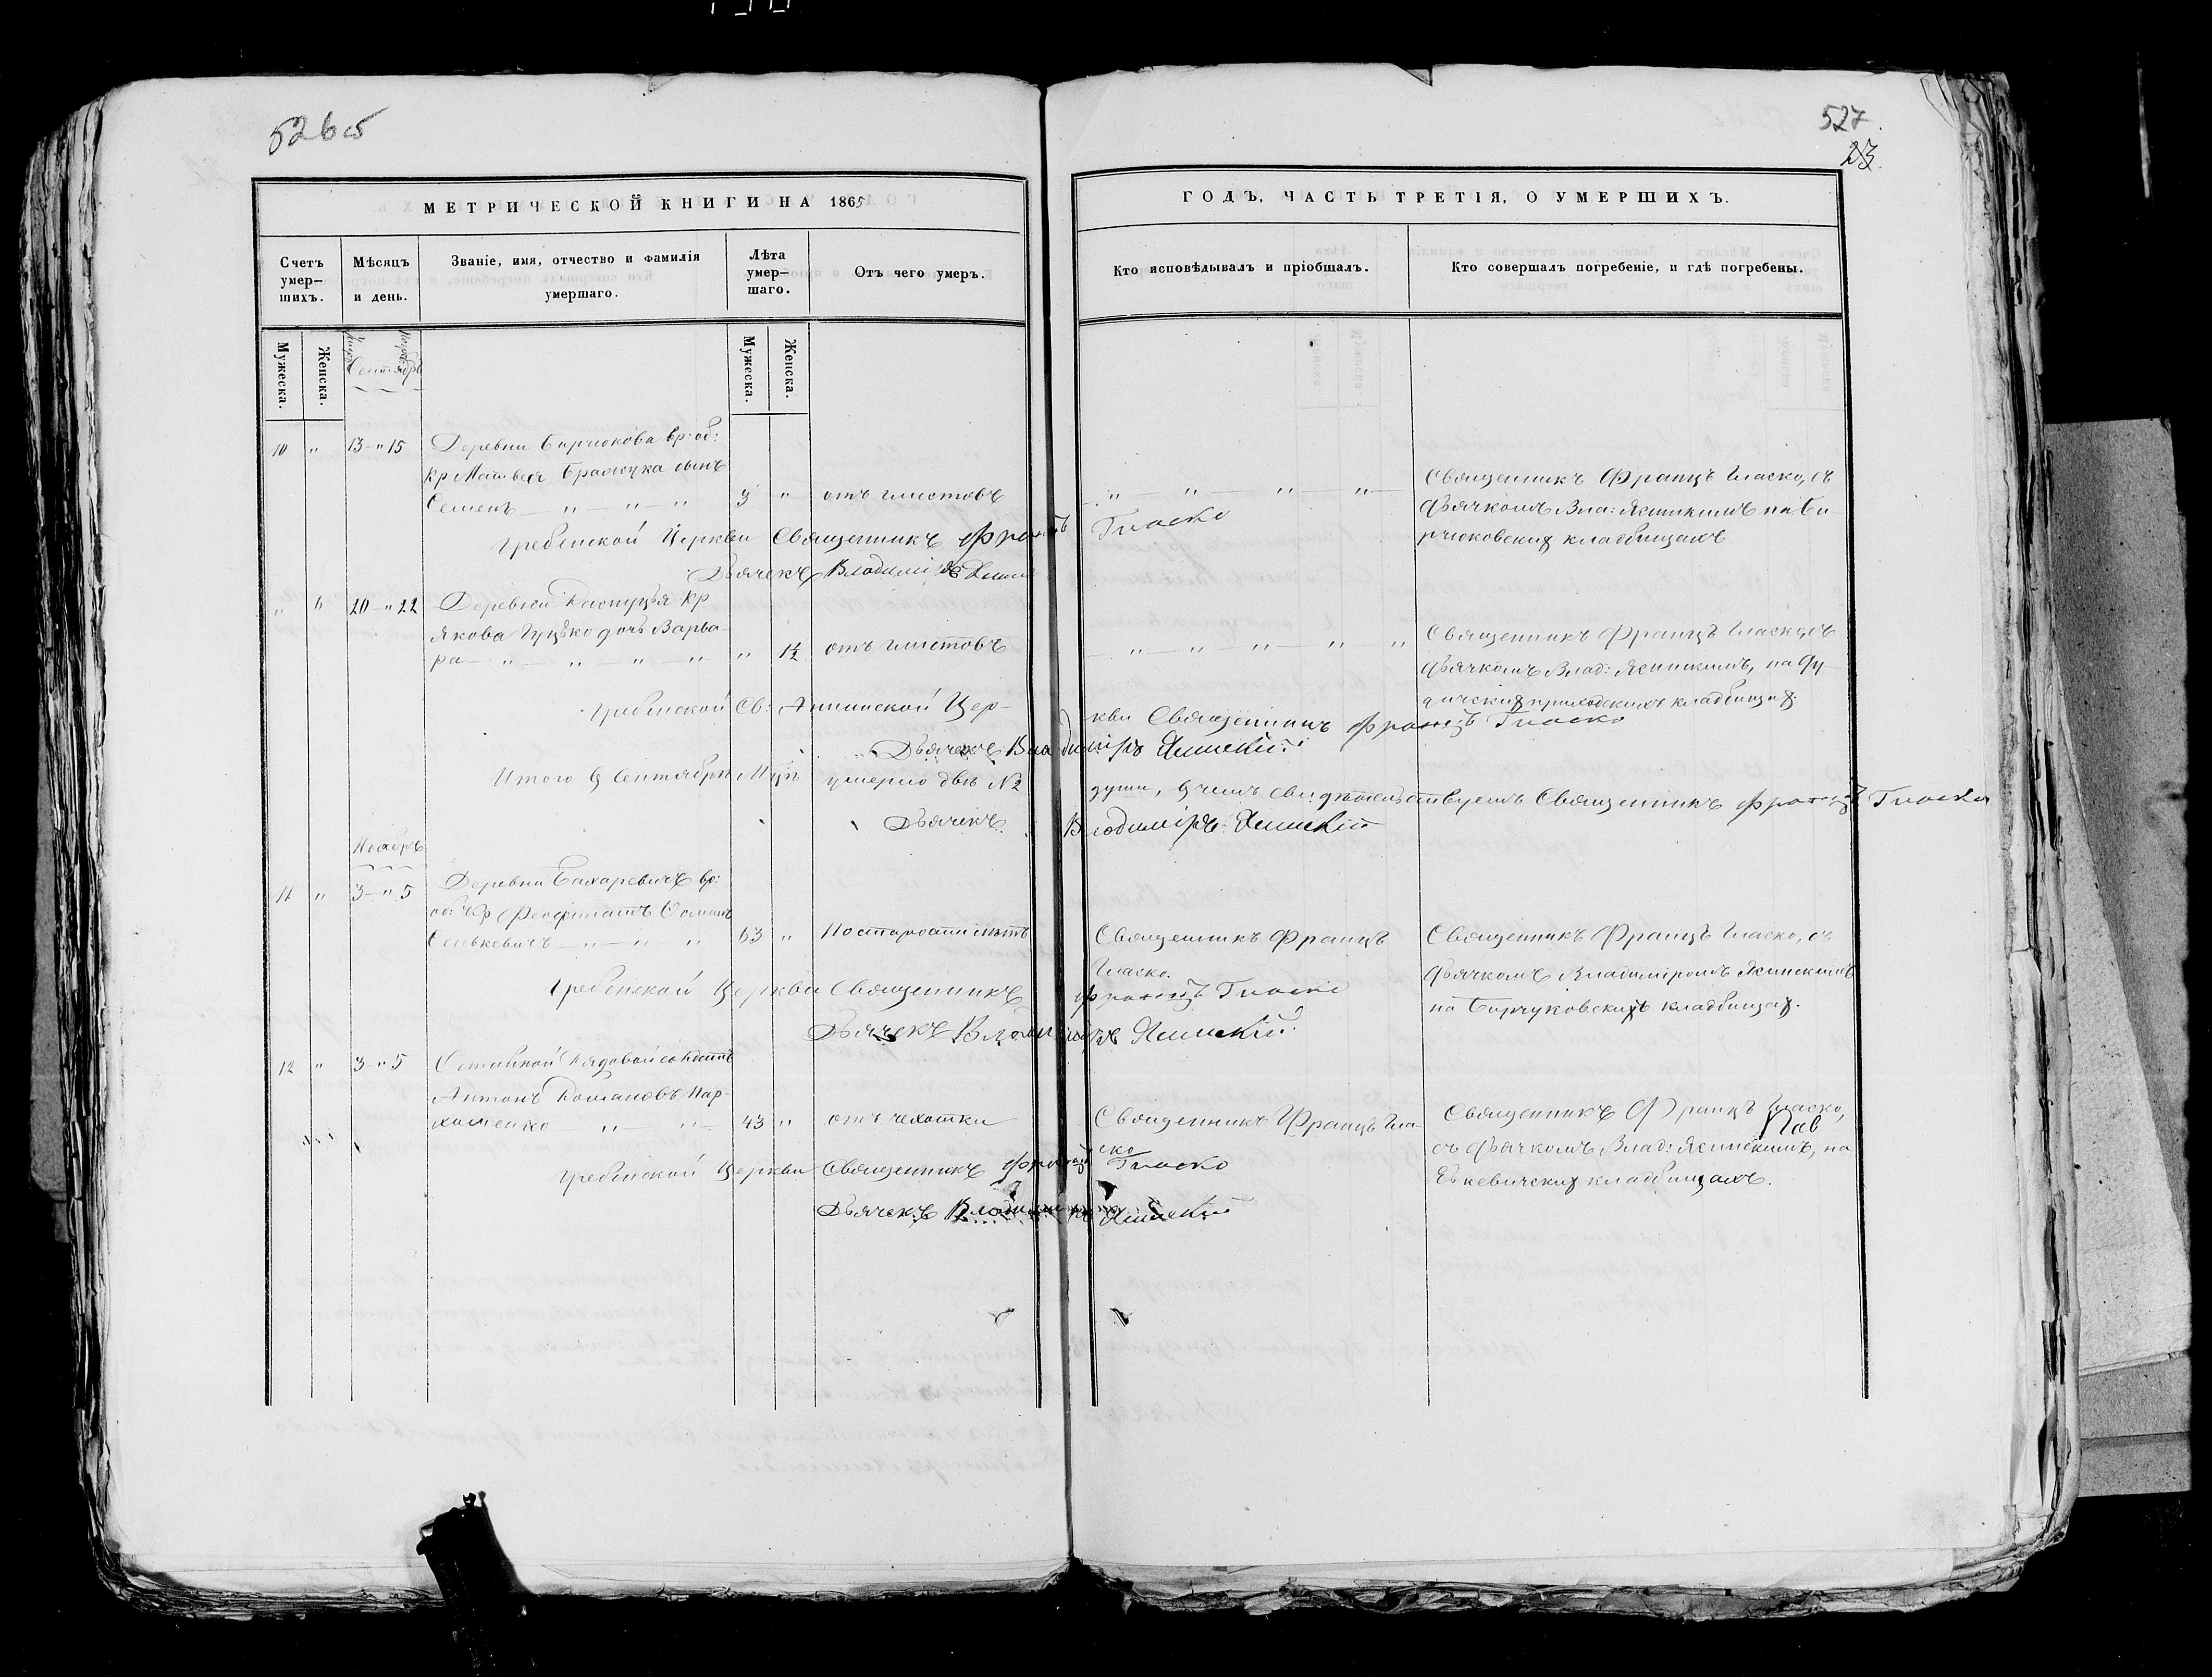 526 об
527.
23.
МЕТРИЧЕСКОЙ КНИГИ НА 1865
ГОДЪ, ЧАСТЬ ТРЕТІЯ, О УМЕРШИХЪ.
Счетъ умер-шихъ.
Мѣсяцъ и день.
Званіе, имя, отчество и фамилія умершаго.
Лѣта умер-шаго.
Отъ чего умеръ.
Кто исповѣдывалъ и пріобщалъ.
Кто совершалъ погребеніе, и гдѣ погребены.
Мужеска.
Женска.
Мужеска.
Женска.
Сентябрь
10 " 13-"15 Деревни Бирчюкова вр: об:
кр Матвея сынъ
Семенъ — " — " — " 3 " отъ глистовъ — " — " — " — " —
Священникъ Францъ Гласко, съ
дьячкомъ Вла: Ясинскимъ на Би-
рчюковских кладбищахъ
Гребенской Церкви Священникъ Францъ Гласко
Дьячекъ Владиміръ Ясинскій
" 6 20-"22 Деревни кр
Якова Гуцько дочь Варва-
ра — " — " — " — " " 1½ отъ глистовъ — " — " " — " "
Священникъ Францъ Гласко, съ
дьячкомъ Влад: Ясинскимъ, на Ду-
дических приходскихъ кладбищах.
Гребенской Св: Аннинской Цер-
кви Священникъ Францъ Гласко
Дьячекъ Владиміръ Ясинскій
Итого в Сентябрѣ М-цѣ умерло двѣ №2
души, в чемъ свидѣтельствуемъ Священникъ Францъ Гласко
Дьячекъ Владиміръ Ясинскій
Ноябрь
11 " 3-"5 Деревни вр:
об: кр Ѳеофилактъ
Сенькевичъ — " — " " 63 " По старости лѣтъ
Священникъ Францъ
Гласко.
Священникъ Францъ Гласко, съ
дьячкомъ Владиміромъ Ясинскимъ
на Бирчуковскихъ кладбищах.
Гребенской Церкви Священникъ Францъ Гласко
Дьячекъ Владиміръ Ясинскій
12 " 3-"5 Отставной Рядовой солдатъ
Антонъ Романовъ Пар-
хоменко — " — " — 43 " отъ чехотки
Священникъ Францъ Гла-
ско
Священникъ Францъ Гласко,
съ дьячкомъ Влад: Ясинскимъ, на
кладбищахъ.
Гребенской Церкви Священникъ Францъ Гласко
Дьячекъ Владиміръ Ясинскій